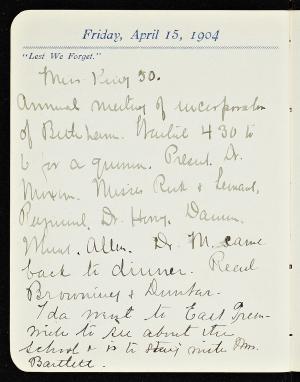 Friday, April 15, 1904
"Lest We Forget."
Miss King 50.
Annual meeting of incorporators
of Bethham. Waited 4 30 to
6 for a quorum. Present. Dr.
Moxom. Misses & Leonard,
Raymond, Dr. Damon.
Allen. Dr. M. came
back to dinner. Read
Browning & Dunbar.
Ida went to East Green-
wich to see about the
school & is to stay with Mrs.
Bartlett.